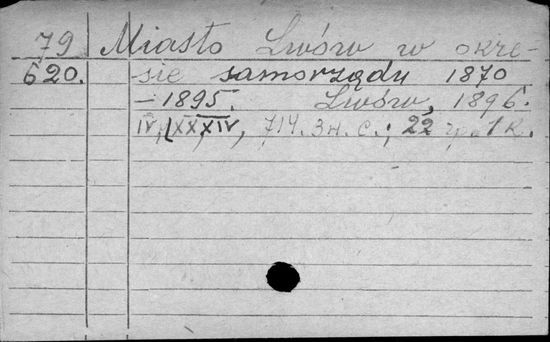 79 Miasto Lwów w okre-
620. sie samorządu 1870
– 1895. Lwów, 1896.
IV, LXXXIV, 714. 3 н. с.; 22 1 к.